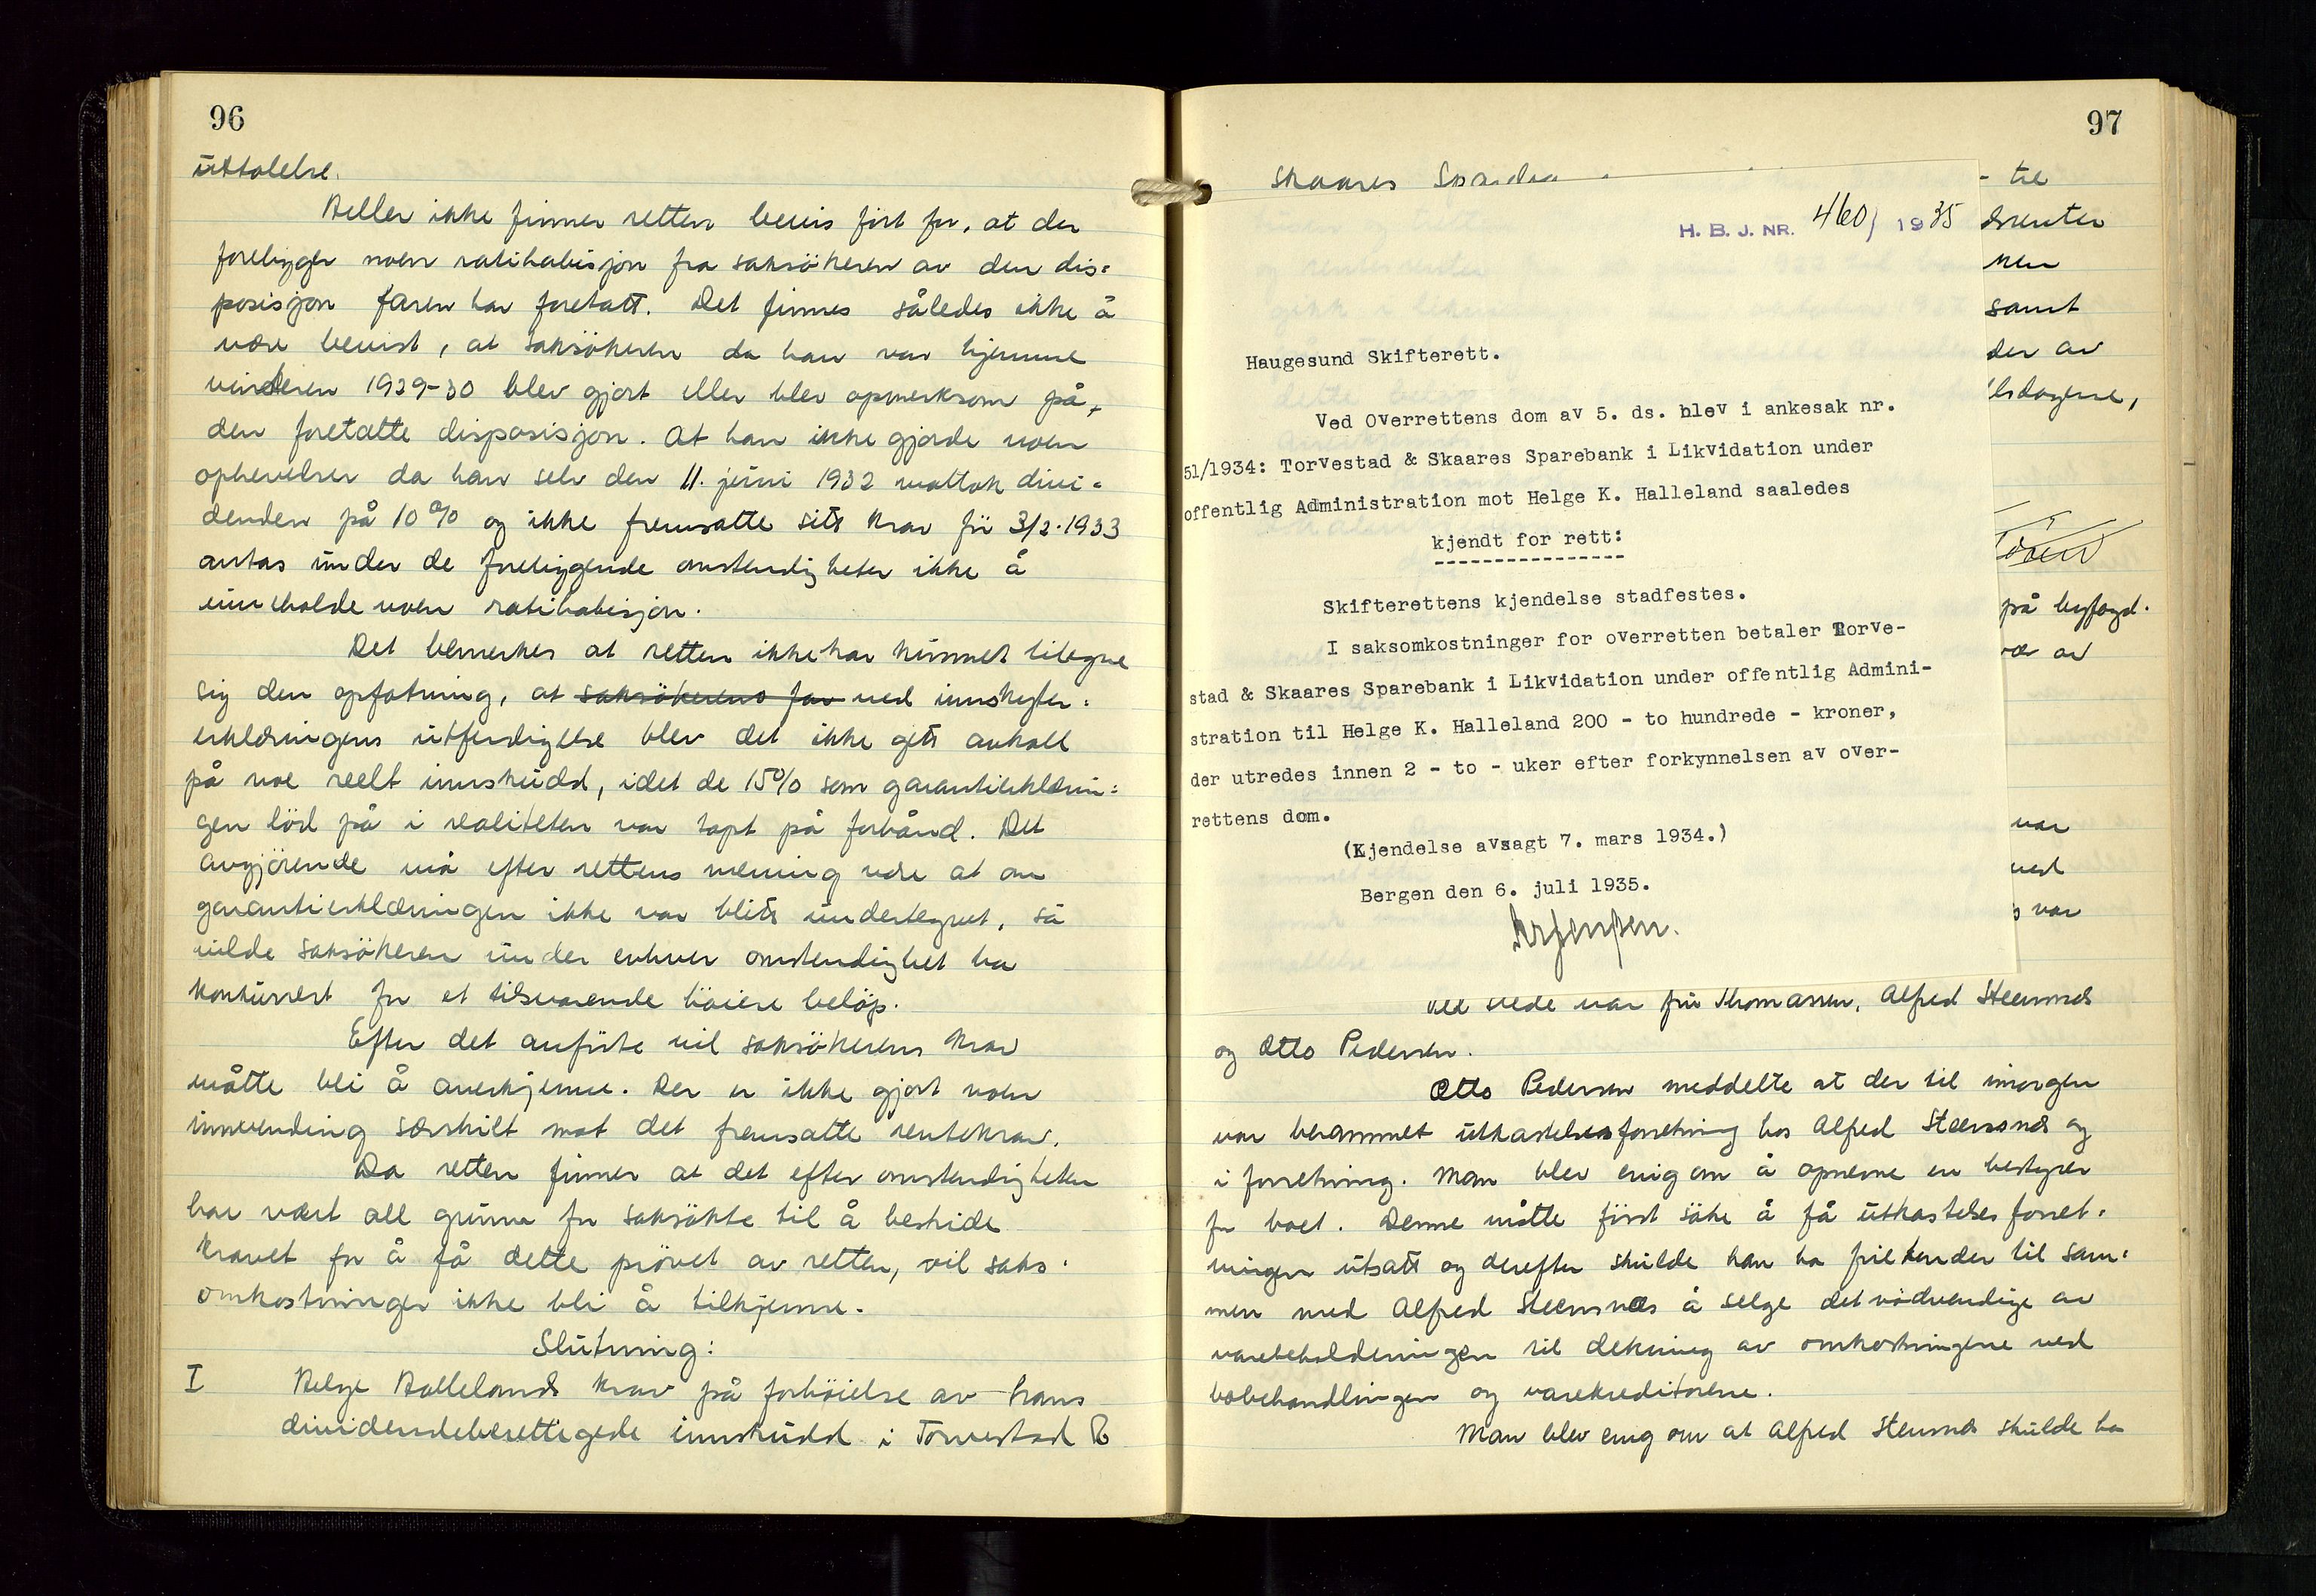 96
uttalelse.
Heller ikke finner retten bevis fört for, at der
foreligger noen ratihabisjon fra saksökeren av den dis=
posisjon faren har foretatt. Det finnes således ikke å
være bevist, at saksökeren da han var hjemme
vinteren 1929-30 blev gjort eller blev opmerksom på
den foretatte disposisjon. At han ikke gjorde noen
ophevelser da han selv den 11. juni 1932 mottok divi=
denden på 10% og ikke fremsatte sitt krav för 3/2-1933
antas under de foreliggende omstendigheter ikke å
inneholde noen ratihabisjon.
Det bemerkes at retten ikke har kunnet tilegne
sig den opfatning, at saksökerens far ved innskyter=
erklæringens utferdigelse blev det ikke gitt avkall
på noe reelt innskudd, idet de 15% som garantierklærin=
gen löd på i realiteten var tapt på forhånd. Det
avgjörende må efter rettens mening være at om
garantierklæringen ikke var blitt undertegnet, så
vilde saksökeren under enhver omstendighet ha
konkurrert for et tilsvarende höiere belöp.
Efter det anförte vil saksökerens krav
måtte bli å anerkjenne. Der er ikke gjort noen
innvending særskilt mot det fremsatte rentekrav.
Da retten finner at det efter omstendigheten
har vært all grunn for saksökte til å bestride
kravet for å få dette prövet av retten, vil saks=
omkostninger ikke bli å tilkjenne.
Slutning:
I Helge Hallelands krav på forhöielse av hans
dividendeberettigede innskudd i Torvestad &
97
Skaares
til
H. B. J. NR. 460/ 1935
samt
der av
Haugesund Skifterett.
Ved Overrettens dom av 5. ds. blev i ankesak nr.
51/1934: Torvestad & Skaares Sparebank i Likvidation under
offentlig Administration mot Helge K. Halleland saaledes
kjendt for rett:
Skifterettens kjendelse stadfestes.
på byfogd.
I saksomkostninger for overretten betaler Torve-
stad & Skaares Sparebank i Likvidation under offentlig Admini-
stration til Helge K. Halleland 200 - to hundrede - kroner,
der utredes innen 2 - to - uker efter forkynnelsen av over-
rettens dom.
var
(Kjendelse avsagt 7. mars 1934.)
ved
Bergen den 6. juli 1935.
var
Ved stede var fru Thomassen, Alfred Steensnæs
og Otto Pedersen.
Otto Pedersen meddelte at der til imorgen
var berammet utkastelsesforretning hos Alfred Steensnæs og
i forretning. Man blev enig om å opnevne en bestyrer
for boet. Denne måtte först söke å få utkastelsesforret=
ningen utsatt og derefter skulde han ha frie hender til sam=
men med Alfred Steensnæs å selge det nödvendige av
varebeholdningen til dekning av omkostningene ved
bobehandlingen og varekreditorene.
Man blev enig om at Alfred Steensnæs skulde ha